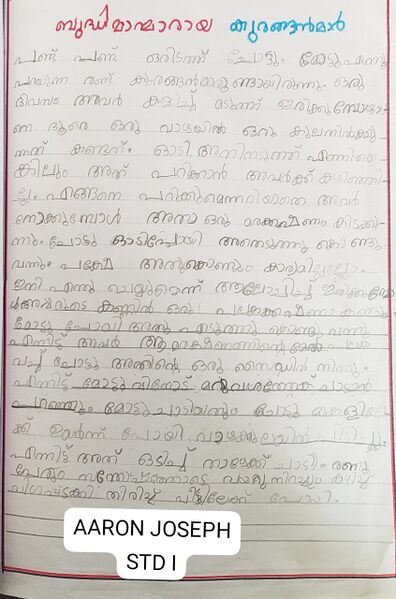 ബുദ്ധിമാന്മാരായ കുരങ്ങൻമാർ
പണ്ട് പണ്ട് ഒരിടത്ത് ചോട്ടു, മോട്ടു എന്നു
പറയുന്ന രണ്ട് കുരങ്ങൻമാരുണ്ടായിരുന്നു. ഒരു
ദിവസം അവർ കളിച്ച് മടുത്ത് ഇരിക്കുമ്പോഴാ
ണ് ദൂരെ ഒരു വാഴയിൽ ഒരു കുലനിൽക്കു
ന്നത് കണ്ടത്. ഓടി അതിനടുത്ത് എത്തിയെ
ങ്കിലും അത് പറിക്കാൻ അവർക്ക് കഴിഞ്ഞി
ല്ല. എങ്ങനെ പറിക്കുമെന്നറിയാതെ അവർ
നോക്കുമ്പോൾ അതാ ഒരു മരക്കഷണം കിടക്കു
ന്നു. ചോട്ടു ഓടിപ്പോയി അതെടുത്തു കൊണ്ടു
വന്നു. പക്ഷേ അതുകൊണ്ടും കാര്യമില്ലല്ലോ.
ഇനി എന്തു ചെയ്യുമെന്ന് ആലോചിച്ച് ഇരിക്കുമ്പോ
ൾ അവരുടെ കണ്ണിൽ ഒരു കണ്ടു.
മോട്ടു പോയി അതു എടുത്തു കൊണ്ടു വന്നു
എന്നിട്ട് അവർ ആ മരക്കഷണത്തിന്റെ മേൽ
വച്ച് ചോട്ടു അതിന്റെ ഒരു സൈഡിൽ നിന്നു.
എന്നിട്ട് മോട്ടുവിനോട് മറുവശത്തേക്ക് ചാടാൻ
പറഞ്ഞു. മോട്ടു ചാടിയതും ചോട്ടു മുകളിലേ
ക്ക് ഉയർന്ന് പോയി വാഴക്കുലയിൽ പിടിച്ചു.
എന്നിട്ട് അത് ഒടിച്ച് താഴേക്ക് ചാടി. രണ്ടു
പേരും സന്തോഷത്തോടെ വയറു നിറച്ചും കഴിച്ച്
തിരിച്ച് വീട്ടിലേക്ക് പോയി.
AARON JOSEPH
STD I